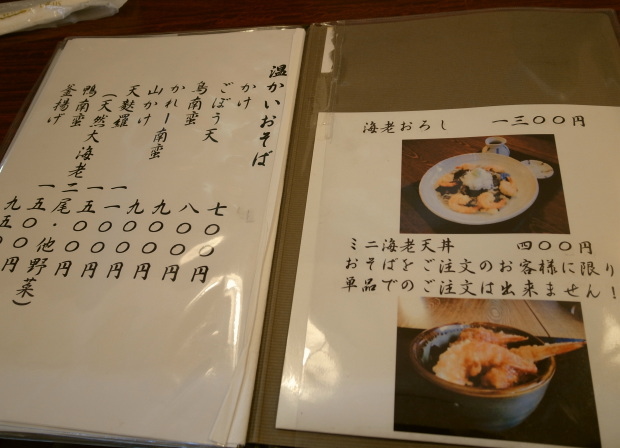 温かいおそば
かけ 七〇〇円
ごぼう天 八〇〇円
鳥南蛮 九〇〇円
かれー南蛮 九〇〇円
山かけ 一一〇〇円
天麩羅 一五〇〇円
(天然大海老二尾・他野菜)
鴨南蛮 一五〇〇円
釜揚げ 九五〇円
海老おろし 一三〇〇円
ミニ海老天丼 四〇〇円
おそばをご注文のお客様に限り
単品でのご注文は出来ません!